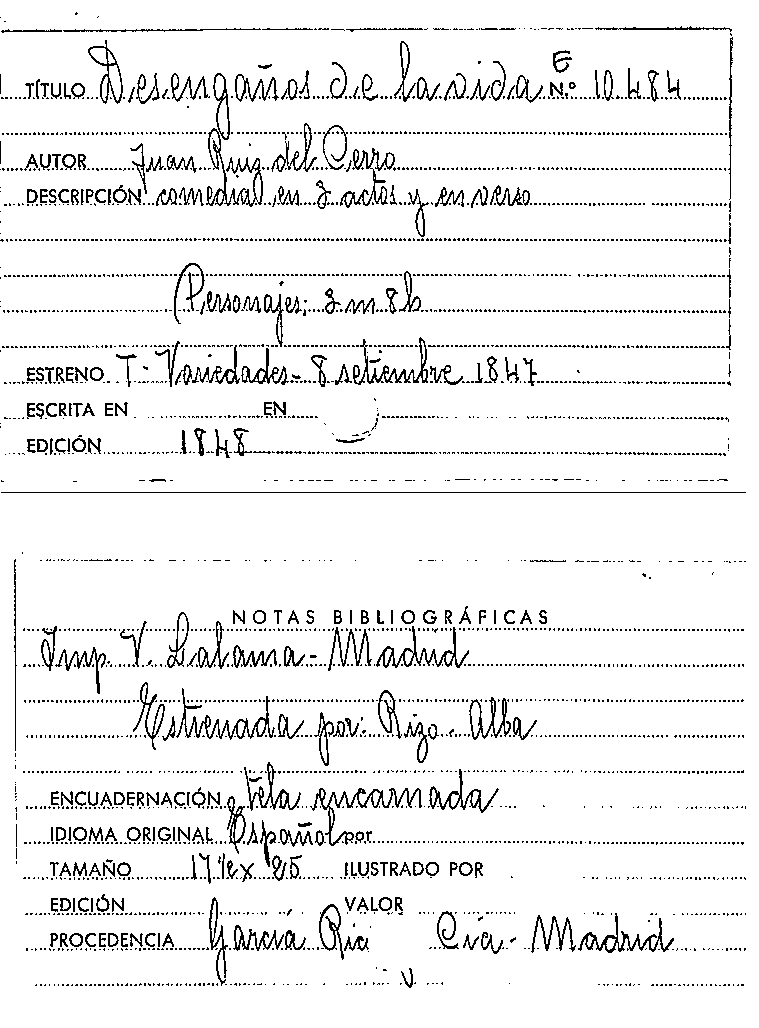 E
TÍTULO Desengaños de la vida N.º 10.484
AUTOR Juan Ruiz del Cerro
DESCRIPCIÓN comedia en 3 actos y en verso
Personajes; 3 m 8 h
ESTRENO T. Variedades - 8 setiembre 1847
ESCRITA EN EN
EDICIÓN 1848
NOTAS BIBLIOGRÁFICAS
Imp. V. Lalama - Madrid
Estrenada por: Rizo - Alba
ENCUADERNACIÓN tela encarnada
IDIOMA ORIGINAL Español por
TAMAÑO 17 ½ x 25 ILUSTRADO POR
EDICIÓN VALOR
PROCEDENCIA García Rico Cia - Madrid